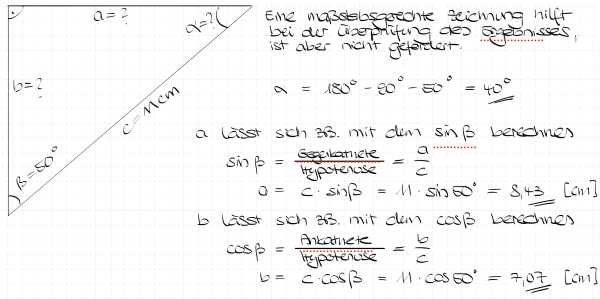 a = ?
α = ?
b = ?
c = 11 cm
β = 50°
Eine maßstabsgerechte Zeichnung hilft
bei der Überprüfung des Ergebnisses,
ist aber nicht gefordert.
α = 180° - 90° - 50° = 40°
a lässt sich z.B. mit dem sin β berechnen
sin β = Gegenkathete / Hypotenuse = a / c
a = c · sin β = 11 · sin 50° = 8,43 [cm]
b lässt sich z.B. mit dem cos β berechnen
cos β = Ankathete / Hypotenuse = b / c
b = c · cos β = 11 · cos 50° = 7,07 [cm]